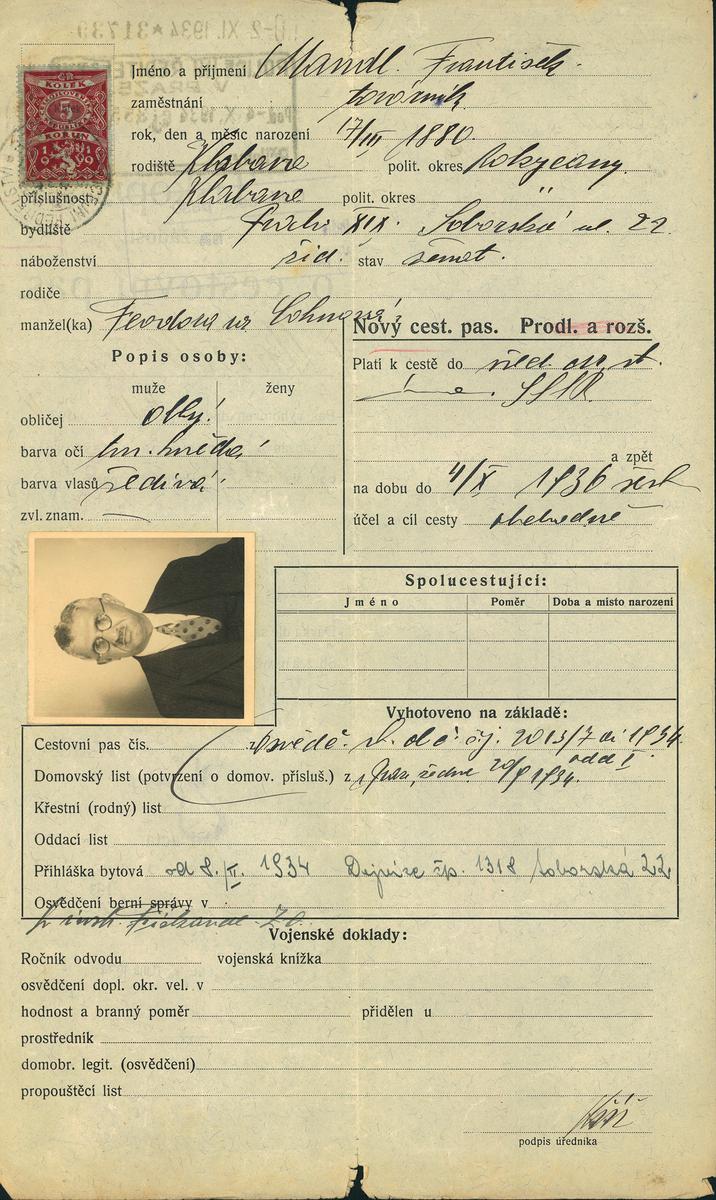 KOLEK
5
KORUN
Jméno a příjmení Mandl František
zaměstnání továrník
rok, den a měsíc narození 17/III 1880.
rodiště Klabava polit. okres Rokycany.
příslušnost Klabava polit. okres "
bydliště Praha XIX. Soborská ul. 22
náboženství žid. stav ženat.
rodiče
manžel(ka) Feodora
Nový cest. pas. Prodl. a rozš.
Popis osoby:
muže ženy
obličej oblý
barva očí tm. hnědá
barva vlasů šedivá
zvl. znam. —
Platí k cestě do
SSSR
a zpět
na dobu do 4/X 1936
účel a cíl cesty obchodně
Spolucestující:
Jméno Poměr Doba a misto narození
Vyhotoveno na základě:
Cestovní pas čís. 2013/7 1934
Domovský list (potvrzení o domov. přísluš.) z 1934.
Křestní (rodný) list
Oddací list
Přihláška bytová od 8./II. 1934 Dejvice čp. 1318 Soborská 22
Osvědčení berní správy v
Vojenské doklady:
Ročník odvodu vojenská knížka
osvědčení dopl. okr. vel. v
hodnost a branný poměr přidělen u
prostředník
domobr. legit. (osvědčení)
propouštěcí list
podpis úředníka